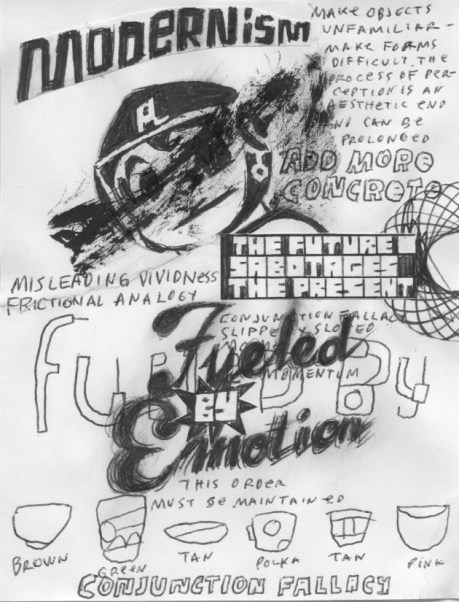 MODERNISM
MAKE OBJECTS
UNFAMILIAR-
MAKE FORMS
DIFFICULT. THE
PROCESS OF PER-
CEPTION IS AN
AESTHETIC END
AND CAN BE
PROLONGED
ADD MORE
CONCRETE
THE FUTURE
SABOTAGES
THE PRESENT
MISLEADING VIVIDNESS
FRICTIONAL ANALOGY
CONJUNCTION FALLACY
SLIPPERY SLOPED
MOMENTUM
Fueled
BY
Emotion
THIS ORDER
MUST BE MAINTAINED
BROWN GREEN TAN POLKA TAN PINK
CONJUNCTION FALLACY